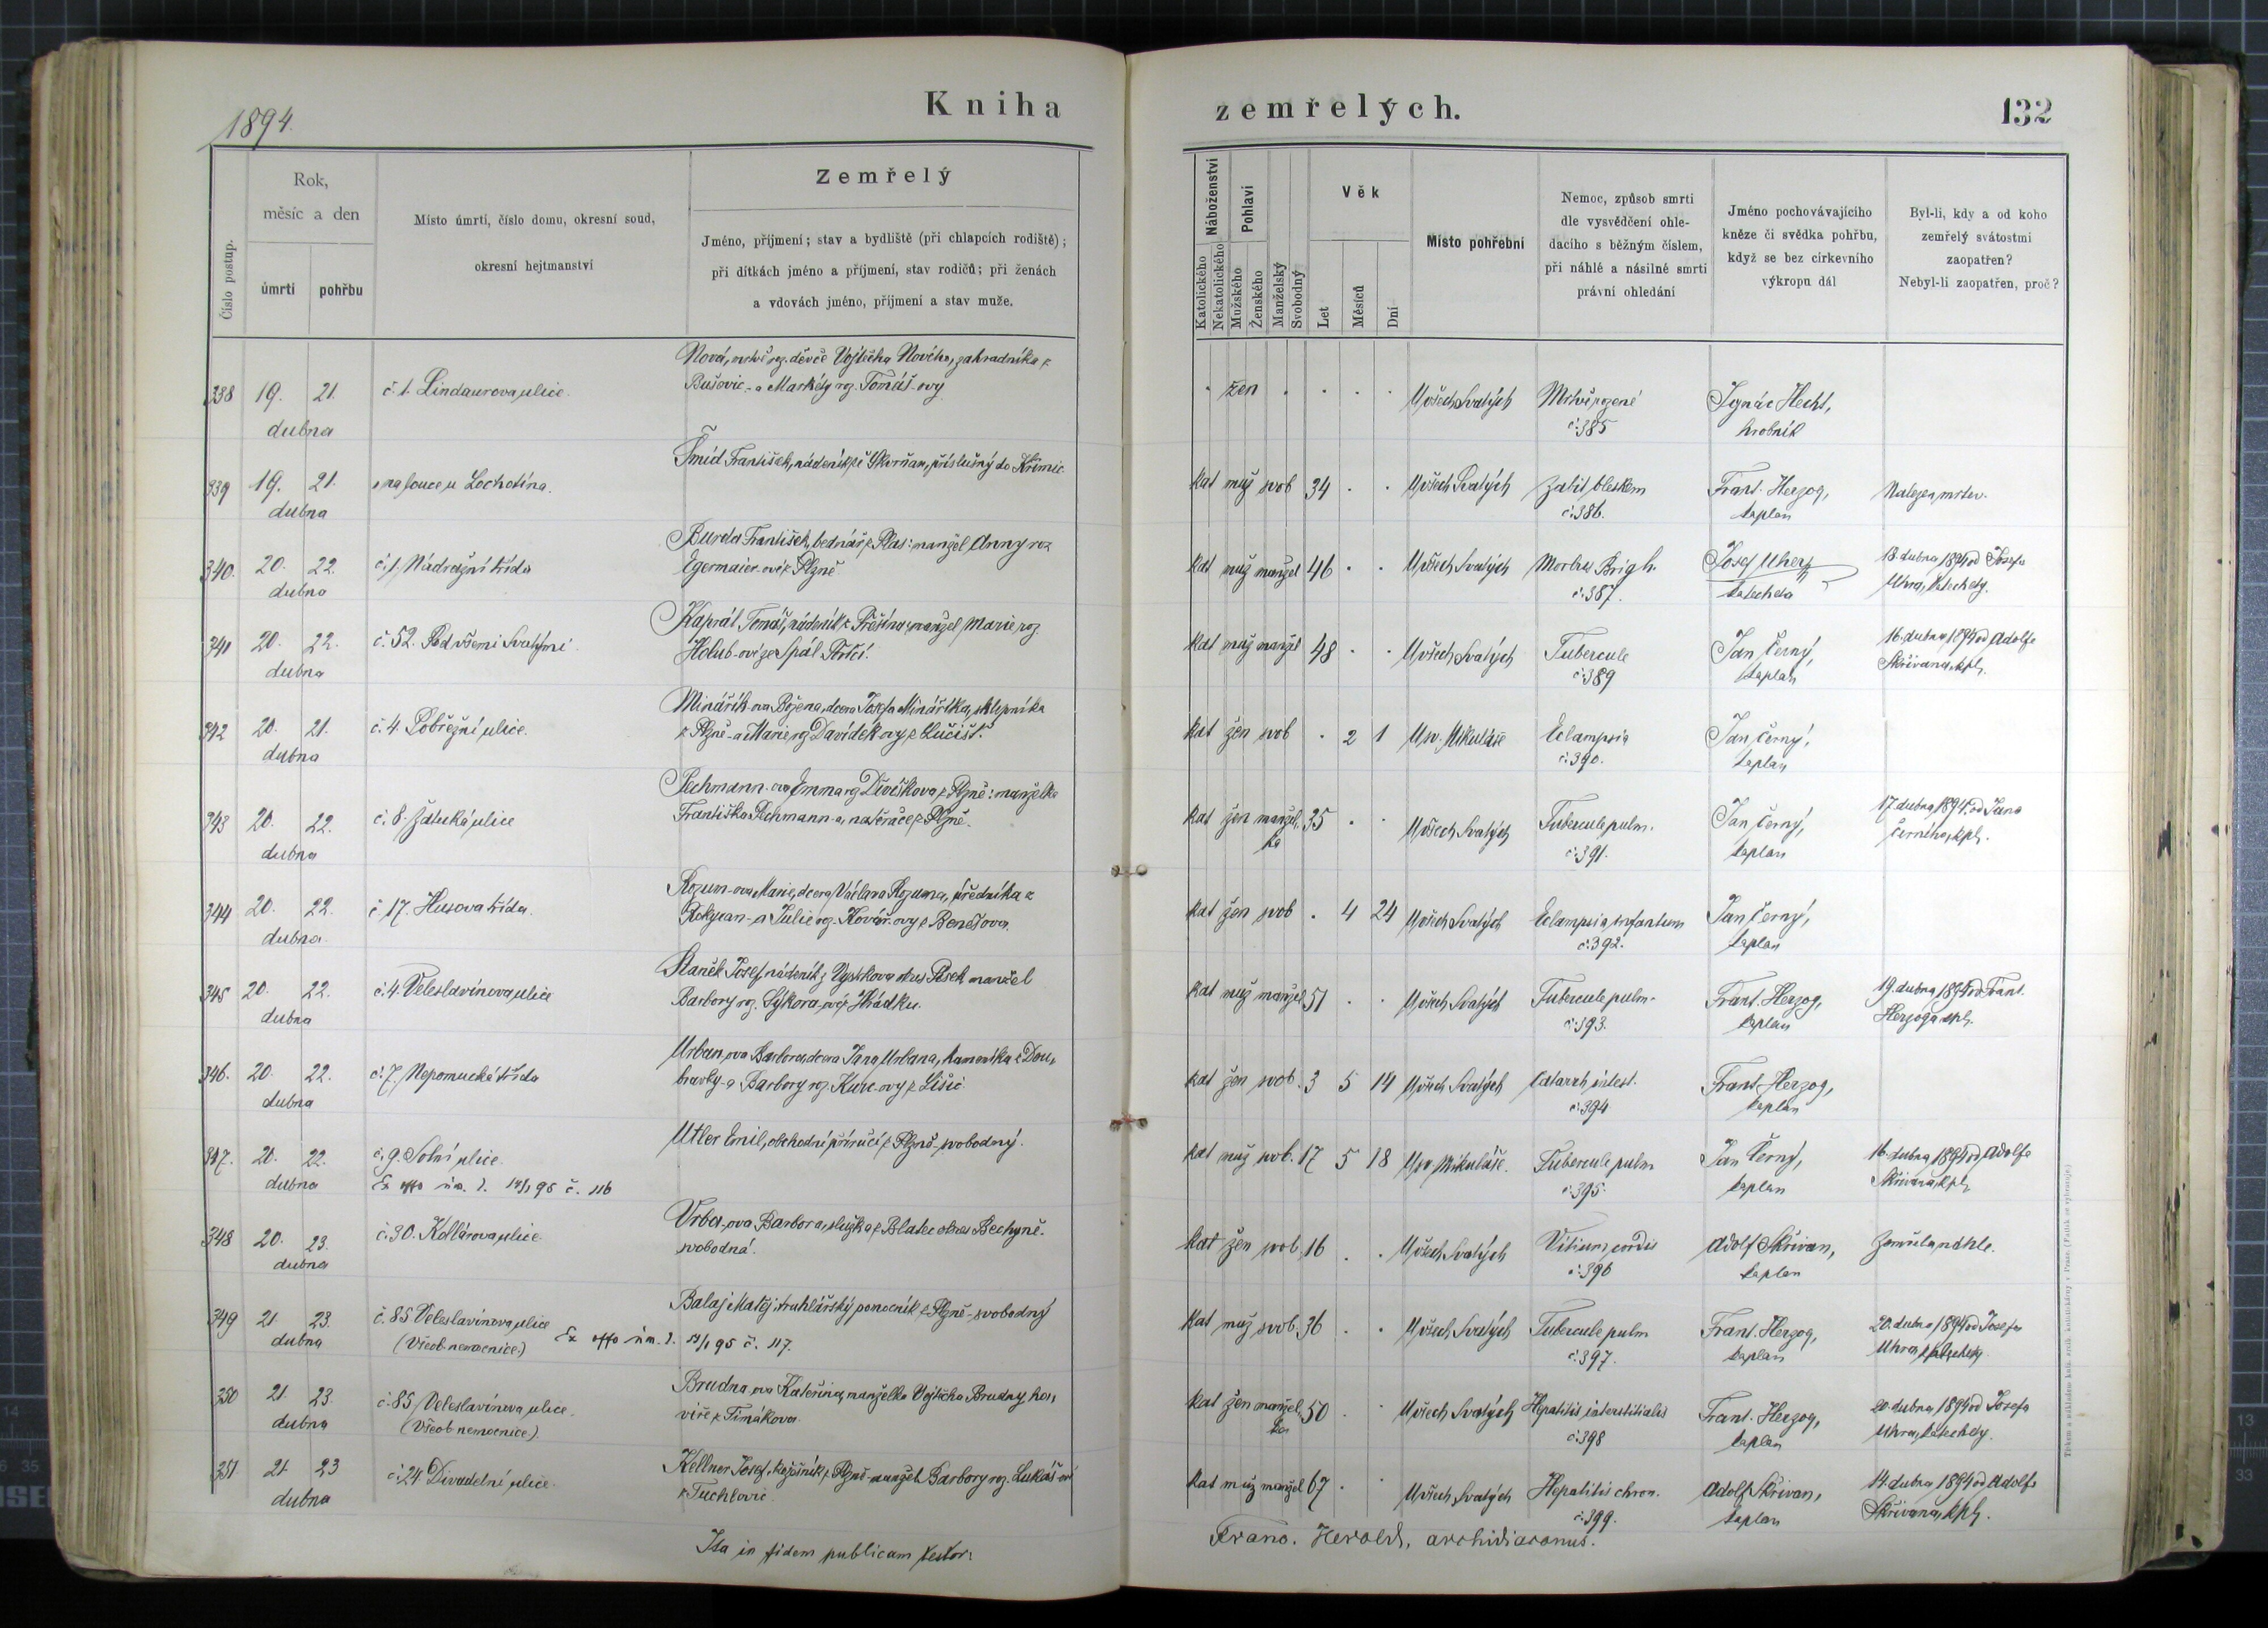 1894.
Kniha zemřelých.
132
Číslo postup.
Rok,
měsíc a den
úmrtí
pohřbu
Místo úmrtí, číslo domu, okresní soud,
okresní hejtmanství
Zemřelý
Jméno, příjmení; stav a bydliště (při chlapcích rodiště);
při dítkách jméno a příjmení, stav rodičů; při ženách
a vdovách jméno, příjmení a stav muže.
Náboženství
Katolického
Nekatolického
Pohlaví
Mužského
Ženského
Manželský
Svobodný
Věk
Let
Měsíců
Dní
Místo pohřební
Nemoc, způsob smrti
dle vysvědčení ohle-
dacího s běžným číslem,
při náhlé a násilné smrti
právní ohledání
Jméno pochovávajícího
kněze či svědka pohřbu,
když se bez církevního
výkropu dál
Byl-li, kdy a od koho
zemřelý svátostmi
zaopatřen?
Nebyl-li zaopatřen, proč?
338 19. 21. dubna
č. 1. Lindaurova ulice.
Nová, mrtvě roz. děvče Vojtěcha Nového, zahradníka z
Bušovic - a Markéty roz. Tomáš-ovy
žen
U všech Svatých
Mrtvě rozené
č. 385
Ignác Hecht,
hrobník
339 19. 21. dubna
na louce u Lochotína.
Šmíd František, nádeník ze Skvrňan, příslušný do Křimic
kat muž svob 34
U všech Svatých
Zabit bleskem
č. 386.
Frant. Herzog,
kaplan
Nalezen mrtev.
340. 20. 22. dubna
č. 1. Nádražní třída
Burda František, bednář z Plas: manžel Anny roz
Egermaier-ové z Plzně
kat muž manžel 46
U všech Svatých
Morbus Brigh.
č. 387.
Josef Uher,
katecheta
18. dubna 1894 od Josefa
Uhra, katechety.
341 20. 22. dubna
č. 52. Pod všemi Svatými
Kaprál Tomáš, nádeník z Přeštína, manžel Marie roz.
Holub-ové ze Spál. Poříčí.
kat muž manžel 48
U všech Svatých
Tubercule
č. 389
Jan Černý,
kaplan
16. dubna 1894 od Adolfa
Skřivana, kpl.
342 20. 21. dubna
č. 4. Pobřežní ulice.
Minářík-ova Božena, dcera Josefa Minaříka, sklepníka
z Plzně - a Marie roz Davídek-ovy z Lučišť.
kat žen svob 2 1
U sv. Mikuláše
Eclampsia
č. 390.
Jan Černý,
kaplan
343 20. 22. dubna
č. 8. Žatecká ulice
Pechmann-ova Emma roz Divíškova z Plzně: manželka
Františka Pechmann-a, natěrače z Plzně.
kat žen manžel-
ka
35
U všech Svatých
Tubercule pulm.
č. 391.
Jan Černý,
kaplan
17. dubna 1894. od Jana
Černého, kpl.
344 20. 22. dubna.
č. 17. Husova třída.
Rozum-ova Marie, dcera Václava Rozuma, úředníka z
Rokycan - a Julie roz. Kovář-ovy z Benešova.
kat žen svob 4 24
U všech Svatých
Eclampsia infantum
č. 392.
Jan Černý,
kaplan
345 20. 22. dubna
č. 4 Veleslavínova ulice
Staněk Josef, nádeník z okres Písek manžel
Barbory roz. Sýkora-ové z Hrádku.
kat muž manžel 51
U všech Svatých
Tubercule pulm.
č. 393.
Frant. Herzog,
kaplan
19. dubna 1894 od Frant.
Herzoga kpl.
346. 20. 22. dubna
č. 7. Nepomucká třída
Urban-ova Barbora, dcera Jana Urbana, kameníka z Dou-
bravky - a Barbory roz. z Lišic
kat žen svob. 3 5 14
U všech Svatých
Catarrh intest.
č. 394
Frant. Herzog,
kaplan
347. 20. 22. dubna
č. 9. Solní ulice.
Ex offo úm. l. 14/1 95 č. 116
Utler Emil, obchodní příručí z Plzně - svobodný.
kat muž svob. 17 5 18
U sv Mikuláše.
Tubercule pulm
č. 395.
Jan Černý,
kaplan
16. dubna 1894 od Adolfa
Skřivana, kpl.
348 20. 23. dubna
č. 30. Kollárova ulice
Vrba-ova Barbora, služka z Blatec okres Bechyně.
svobodná.
kat žen svob. 16
U všech Svatých
Vitium cordis
č. 396
Adolf Skřivan,
kaplan
Zemřela náhle.
349 21. 23. dubna
č. 85 Veleslavínova ulice
(Všeob. nemocnice.)
Ex offo úm. l. 14/1 95 č. 117.
Balaj Matěj, truhlářský pomocník z Plzně - svobodný
kat muž svob. 36
U všech Svatých
Tubercule pulm
č. 397.
Frant. Herzog,
kaplan
20. dubna 1894 od Josefa
Uhra, katechety.
350 21. 23. dubna
č. 85 Veleslavínova ulice.
(Všeob nemocnice).
Brudna-ova Kateřina, manželka Vojtěcha Brudny, ha-
víře z Timákova.
kat žen manžel-
ka
50
U všech Svatých
Hepatitis interstitialis
č. 398
Frant. Herzog,
kaplan
20. dubna 1894 od Josefa
Uhra, katechety.
351. 21. 23 dubna
č. 24 Divadelní ulice.
Kellner Josef, kožešník z Plzně - manžel Barbory roz. Lukáš-ové
z Tuchlovic.
kat muž manžel 67
U všech Svatých
Hepatitis chron.
č. 399.
Adolf Skřivan,
kaplan
14. dubna 1894 od Adolfa
Skřivana, kpl.
Ita in fidem publicam testor: Franc. Herold, archidiaconus.